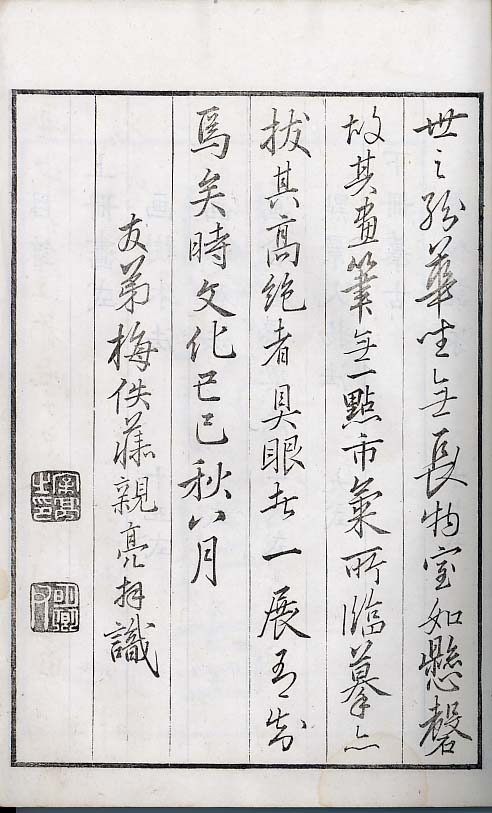 世之紛華坐無長物室如懸磬
故其畫筆無一點市氣所臨摹亦
拔其高絶者具眼者一展可知
焉矣時文化己巳秋八月
友弟梅佚藤親亮拜識